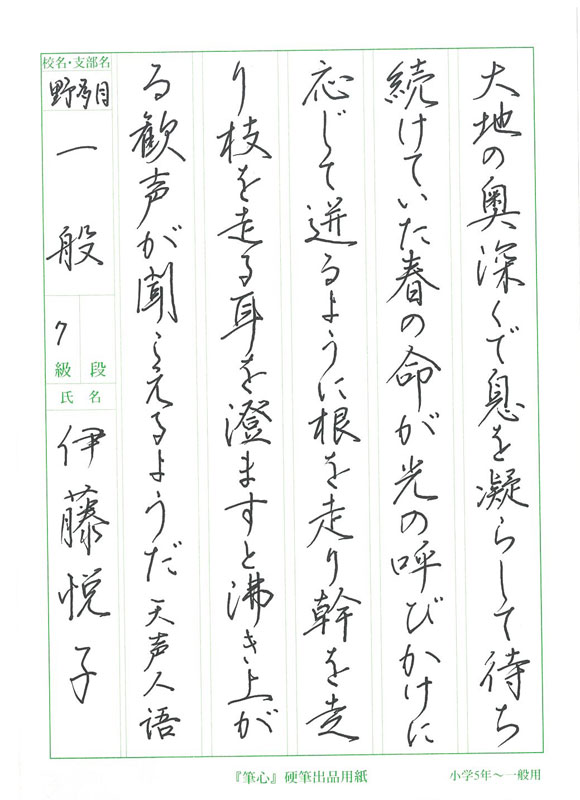 大地の奥深くで息を凝らして待ち
続けていた春の命が光の呼びかけに
応じて迸るように根を走り幹を走
り枝を走る耳を澄ますと沸き上が
る歓声が聞こえるようだ 天声人語
校名・支部名
野多目
一般
7
級 段
氏名
伊藤悦子
『筆心』硬筆出品用紙
小学5年〜一般用